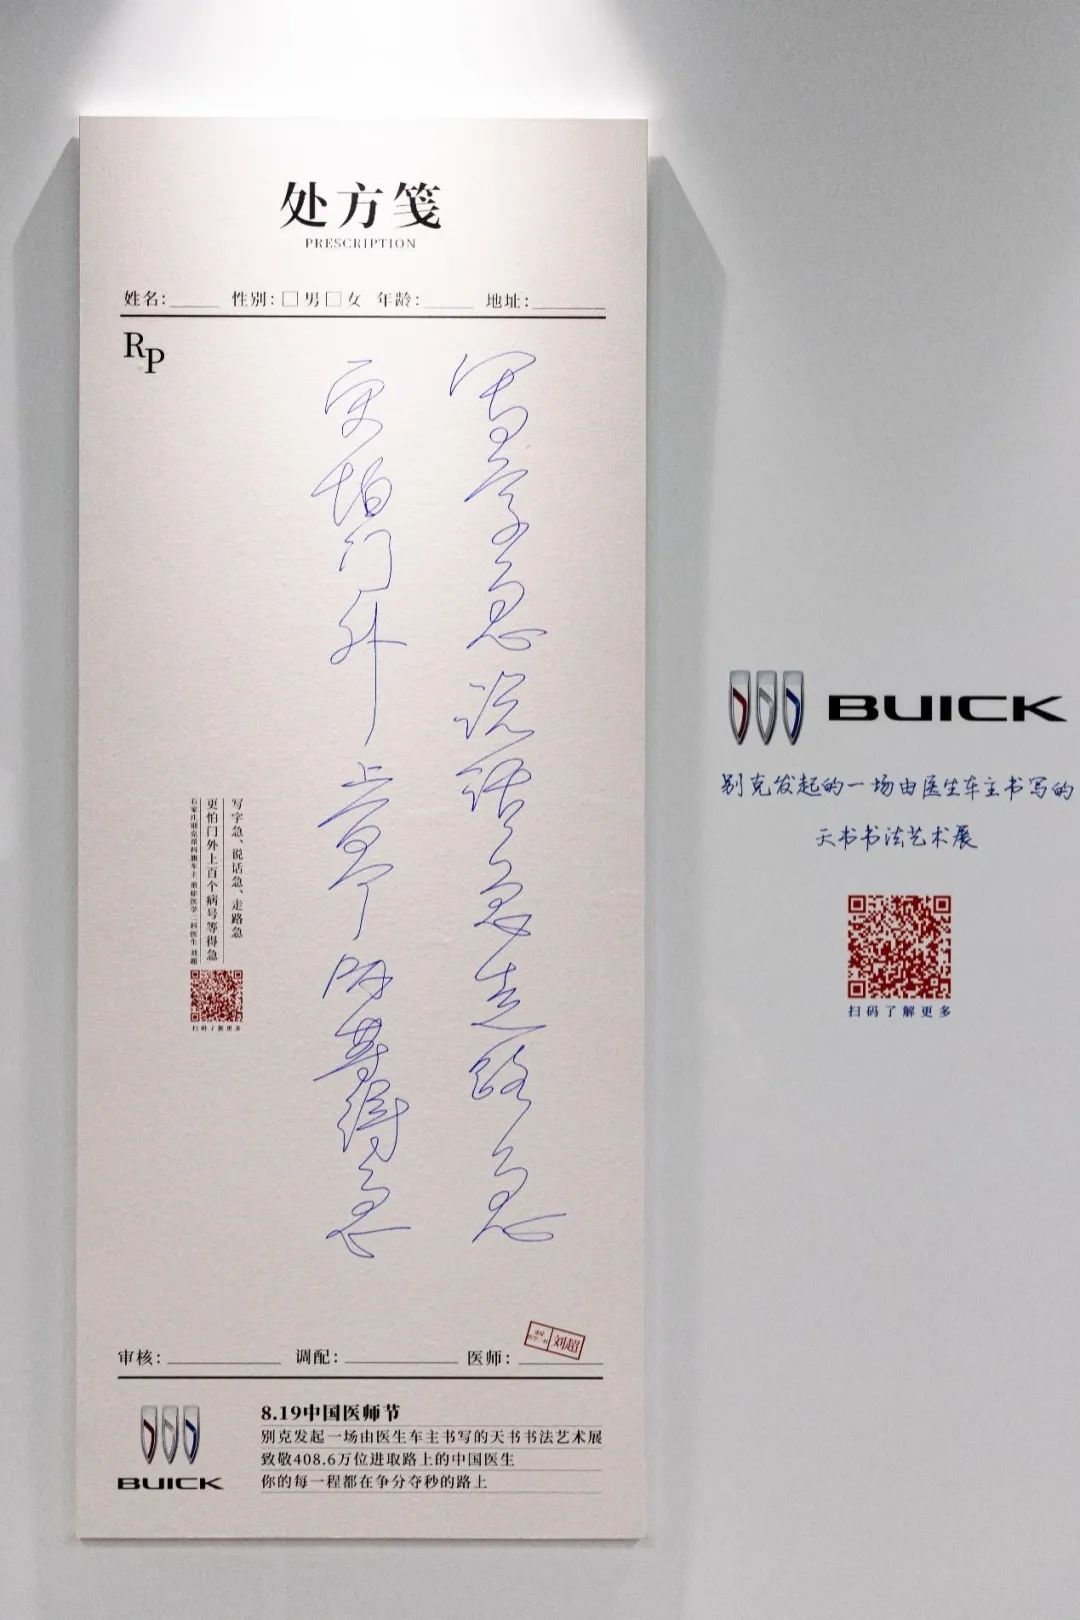 处方笺
PRESCRIPTION
姓名: 性别:□男□女 年龄: 地址:
RP
写字急说话急走路急
更怕门外上百个病号等得急
写字急、说话急、走路急
更怕门外上百个病号等得急
石家庄别克昂科旗车主 重症医学二科医生 刘超
扫码了解更多
审核: 调配: 医师:
刘超
BUICK
8.19中国医师节
别克发起一场由医生车主书写的天书书法艺术展
致敬408.6万位进取路上的中国医生
你的每一程都在争分夺秒的路上
BUICK
别克发起的一场由医生车主书写的
天书书法艺术展
扫码了解更多